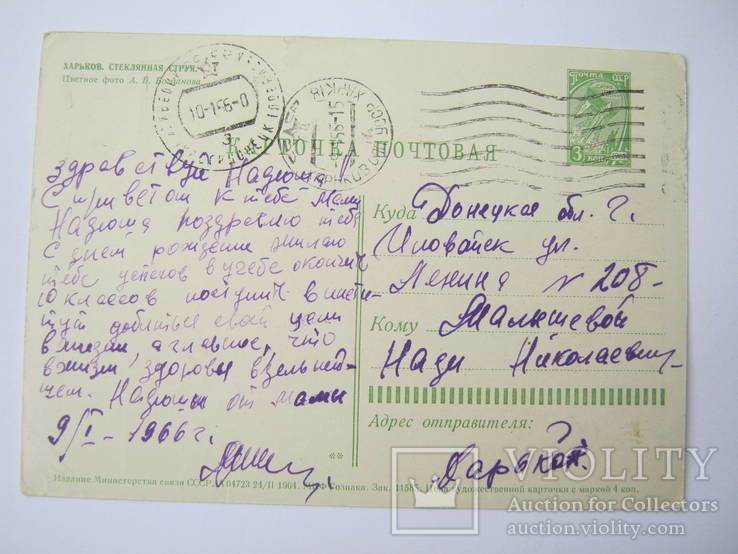 ХАРЬКОВ. СТЕКЛЯННАЯ СТРУЯ.
Цветное фото А. В. Богданова
ПОЧТА СССР
3 коп
10-1-66-0
ХАРКІВ
КАРТОЧКА ПОЧТОВАЯ
здравствуй Надюша!!
С приветом к тебе мама
Надюша поздравляю тебя
С днем рождения желаю
тебе успехов в учебе окончить
10 классов поступить в инсти-
тут добиться своей цели
в жизни, а главное, что
в жизни здоровья в дальней-
шем. Надюши от мамы
9/I-1966г.
Куда Донецкая обл. г.
Иловайск ул.
Ленина № 208-
Кому Малышевой
Нади Николаевны
Адрес отправителя:
Харьков.
**
Издание Министерства связи СССР. А 04723 24/II 1964. МПФ Гознака. Зак. 11586. Цена художественной карточки с маркой 4 коп.
VIOLITY
Auction for Collectors
auction.violity.com